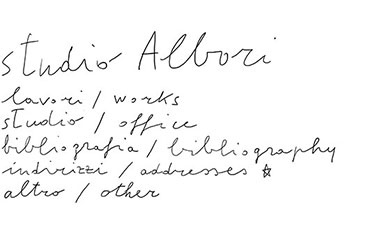 studio Albori
lavori / works
studio / office
bibliografia / bibliography
indirizzi / addresses ☆
altro / other